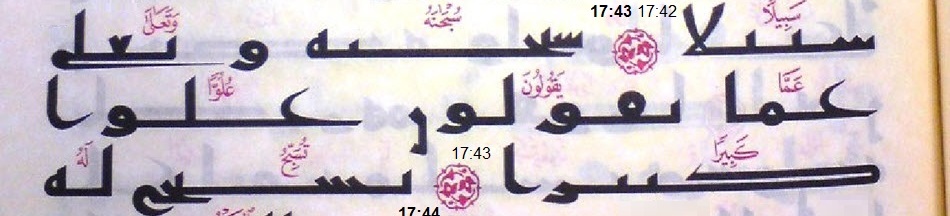 سَبِيلًا 17:42 17:43 سُبْحَٰنَهُ وَتَعَالَىٰ
سىىلا سحىه و ىعلى
عَمَّا يَقُولُونَ عُلُوًّا
عما ىٯولوں علوا
كَبِيرًا 17:43 تُسَبِّحُ لَهُ
كىىرا ىسىح له
17:44